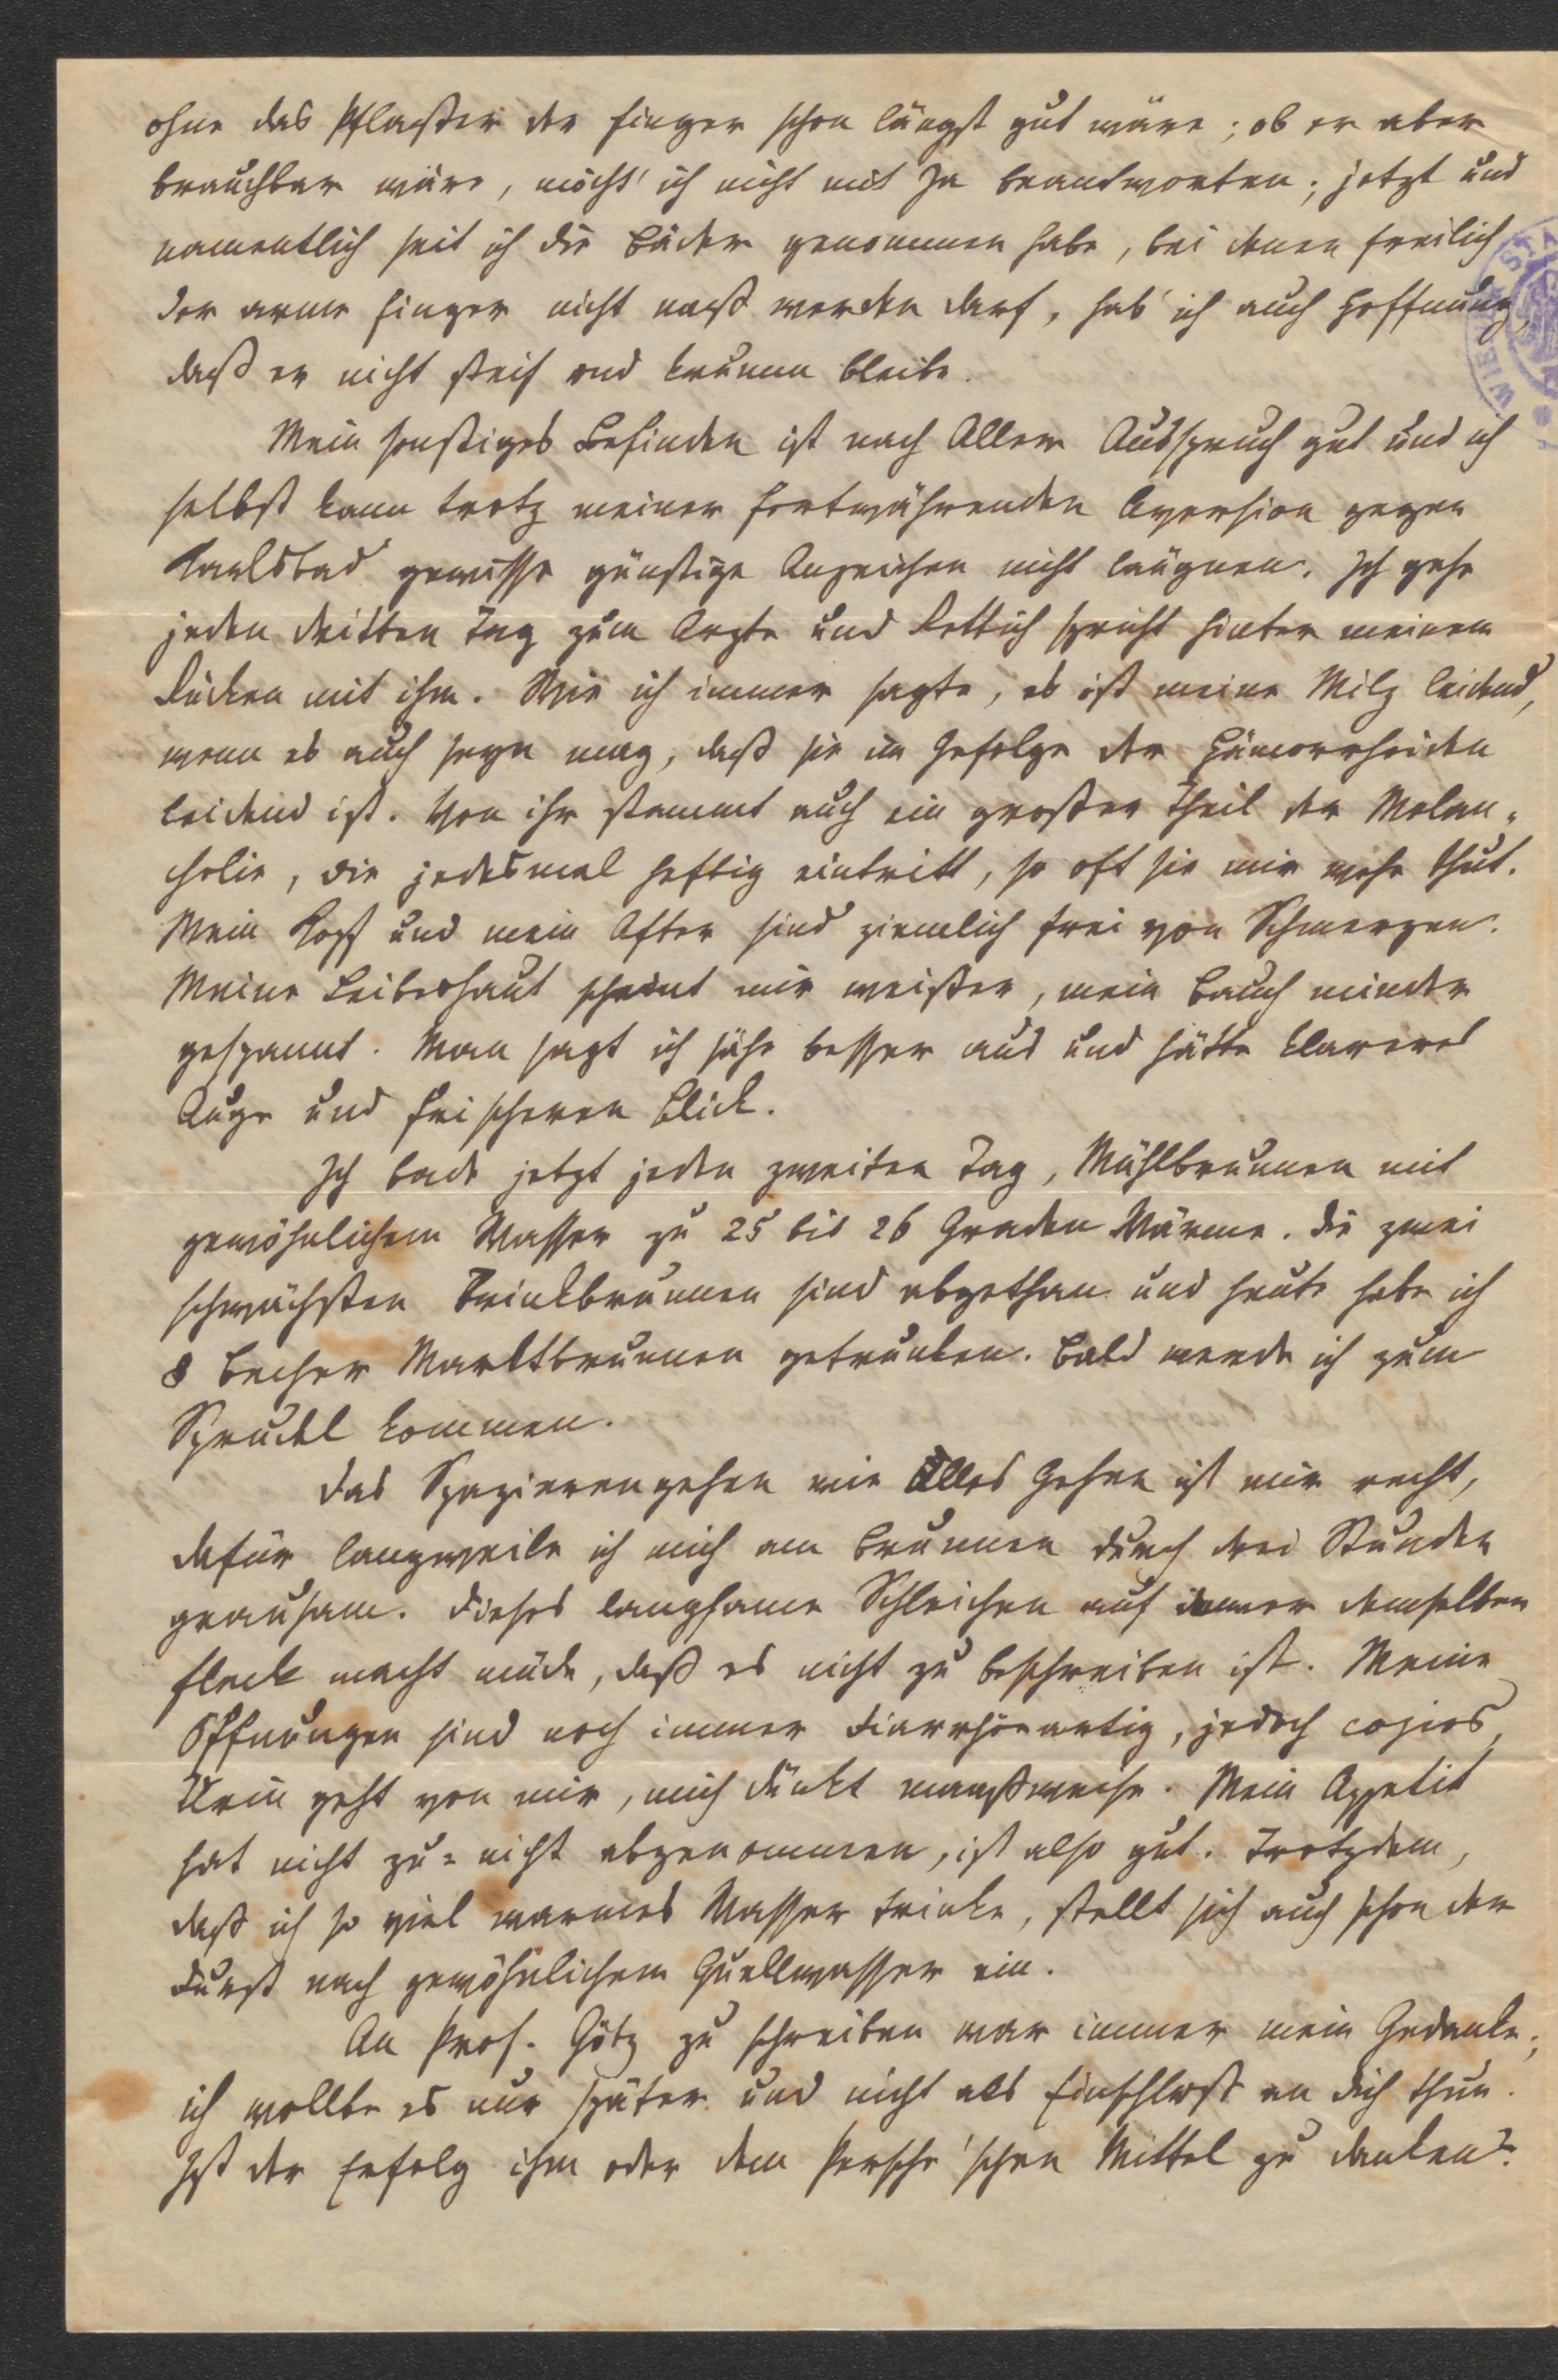 ohne das Pflaster der Finger schon längst gut wäre; ob er aber
brauchbar wäre, möcht' ich nicht mit Ja beantworten; jetzt und
namentlich seit ich die Bäder genommen habe, bei denen freilich
der arme Finger nicht naß werden darf, hab' ich auch Hoffnung,
daß er nicht steif und krumm bleibe.
Mein sonstiges Befinden ist nach Aller Ausspruch gut und ich
selbst kann trotz meiner fortwährenden Aversion gegen
Karlsbad gewisse günstige Anzeichen nicht läugnen. Ich gehe
jeden dritten Tag zum Arzte und Rettich spricht hinter meinem
Rücken mit ihm. Wie ich immer sagte, es ist meine Milz leidend,
wenn es auch seyn mag, daß sie im Gefolge der Hämorrhoiden
leidend ist. Von ihr stammt auch ein großer Theil der Melan-
cholie, die jedesmal heftig eintritt, so oft sie mir wehe thut.
Mein Kopf und mein After sind ziemlich frei von Schmerzen.
Meine Leibeshaut scheint mir weißer, mein Bauch minder
gespannt. Man sagt ich sähe besser aus und hätte klareres
Auge und frischeren Blick.
Ich bade jetzt jeden zweiten Tag, Mühlbrunnen mit
gewöhnlichem Wasser zu 25 bis 26 Graden Wärme. Die zwei
schwächsten Trinkbrunnen sind abgethan und heute habe ich
8 Becher Marktbrunnen getrunken. Bald werde ich zum
Sprudel kommen.
Das Spazierengehen wie alles Gehen ist mir recht,
dafür langweile ich mich am Brunnen durch drei Stunden
grausam. Dieses langsame Schleichen auf immer demselben
Fleck macht müde, daß es nicht zu beschreiben ist. Meine
Öffnungen sind noch immer diarrhöeartig, jedoch copios,
Urin geht von mir, mich dünkt maaßweise. Mein Appetit
hat nicht zu- nicht abgenommen, ist also gut. Trotzdem,
daß ich so viel warmes Wasser trinke, stellt sich auch schon der
Durst nach gewöhnlichem Quellwasser ein.
An Prof. Götz zu schreiben war immer mein Gedanke;
ich wollte es nur später und nicht als Einschluß an dich thun.
Ist der Erfolg ihm oder dem Persche'schen Mittel zu danken?